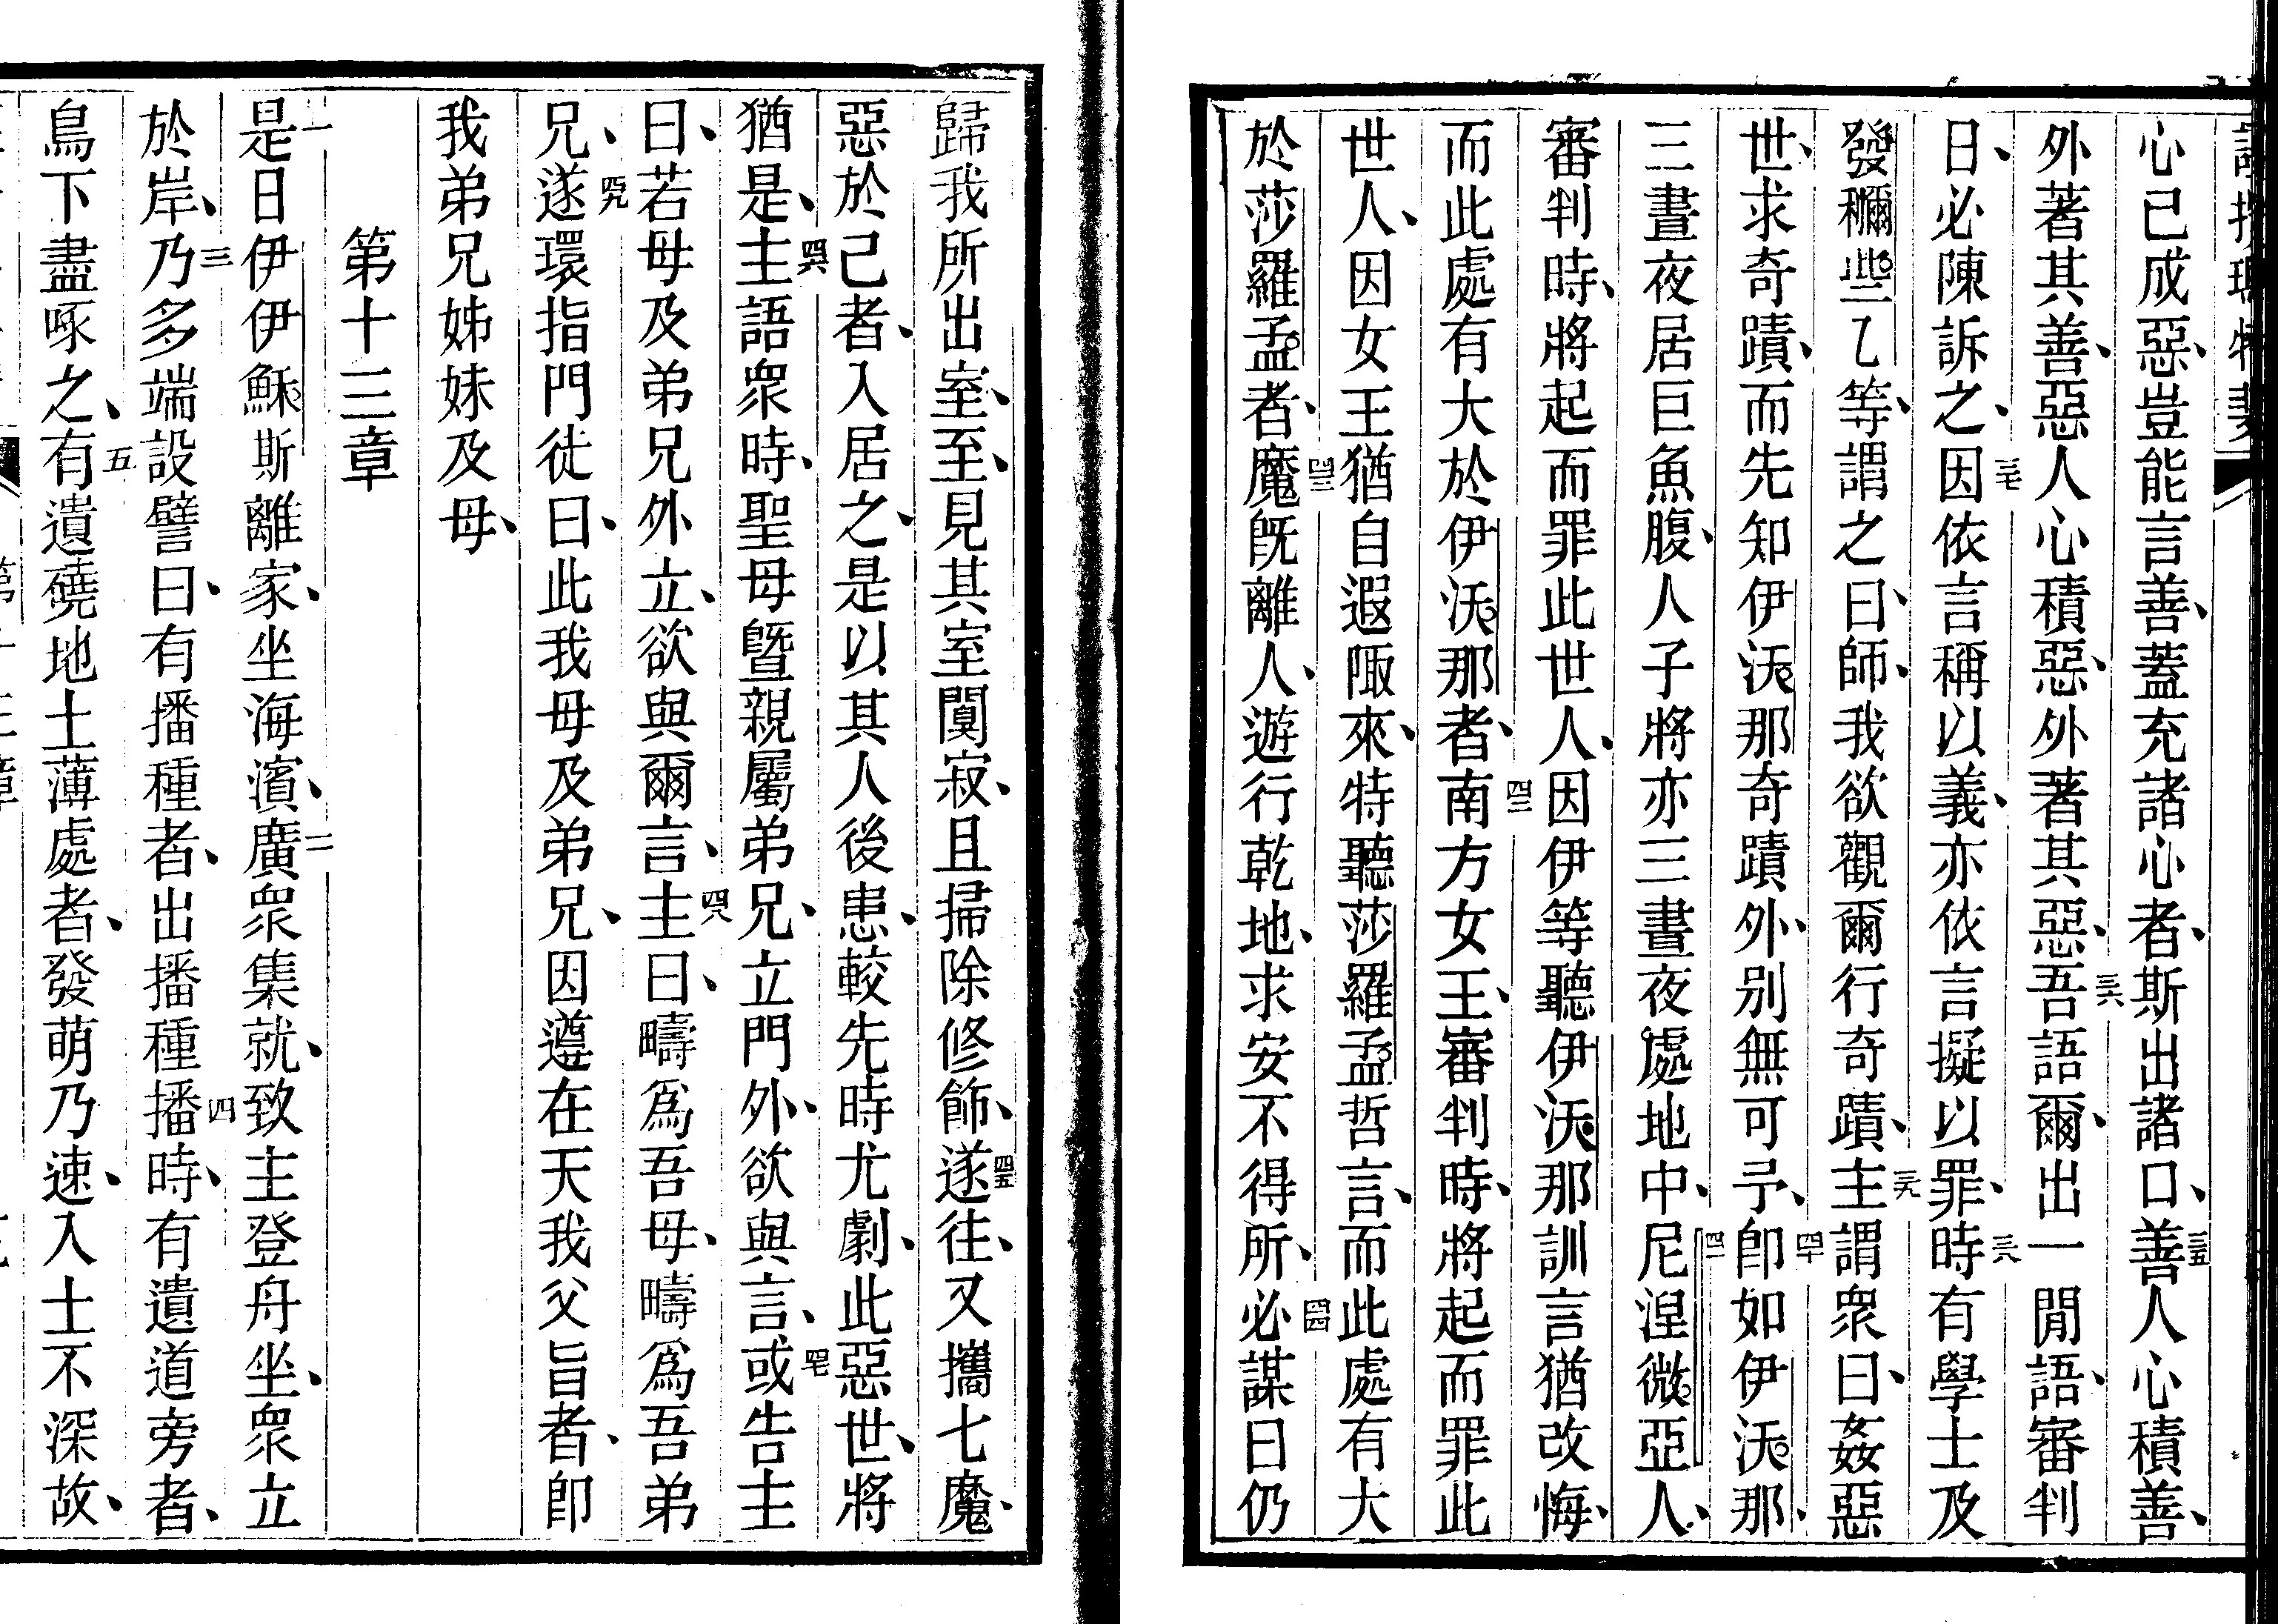 心已成惡、豈能言善、蓋充諸心者、斯出諸口、三五善人心積善、
外著其善、惡人心積惡、外著其惡、三六吾語爾、出一閒語、審判
日、必陳訴之、三七因依言稱以義、亦依言擬以罪、三八時有學士及
發穪些乙等、謂之曰、師、我欲觀爾行奇蹟、三九主謂衆曰、姦惡
世、求奇蹟、而先知伊沃那奇蹟外、别無可予、四十卽如伊沃那、
三晝夜居巨魚腹、人子將亦三晝夜處地中、四一尼涅微亞人、
審判時、將起而罪此世人、因伊等聽伊沃那訓言猶改悔、
而此處有大於伊沃那者、四二南方女王、審判時、將起而罪此
世人、因女王猶自遐陬來、特聽莎羅孟哲言、而此處有大
於莎羅孟者、四三魔旣離人、遊行乾地、求安不得所、四四必謀曰仍
歸我所出室、至、見其室闃寂、且掃除修飾、四五遂往、又攜七魔、
惡於己者、入居之、是以其人後患、較先時尤劇、此惡世、將
猶是、四六主語衆時、聖母曁親屬弟兄、立門外、欲與言、四七或告主
曰、若母及弟兄外立、欲與爾言、四八主曰、疇爲吾母、疇爲吾弟
兄、四九遂環指門徒曰、此我母及弟兄、因遵在天我父旨者、卽
我弟兄姊妹及母、
第十三章
一是日伊伊穌斯離家、坐海濱、二廣衆集就、致主登舟坐、衆立
於岸、三乃多端設譬曰、有播種者、出播種、四播時、有遺道旁者、
鳥下盡啄之、五有遺磽地土薄處者、發萌乃速、入土不深故、